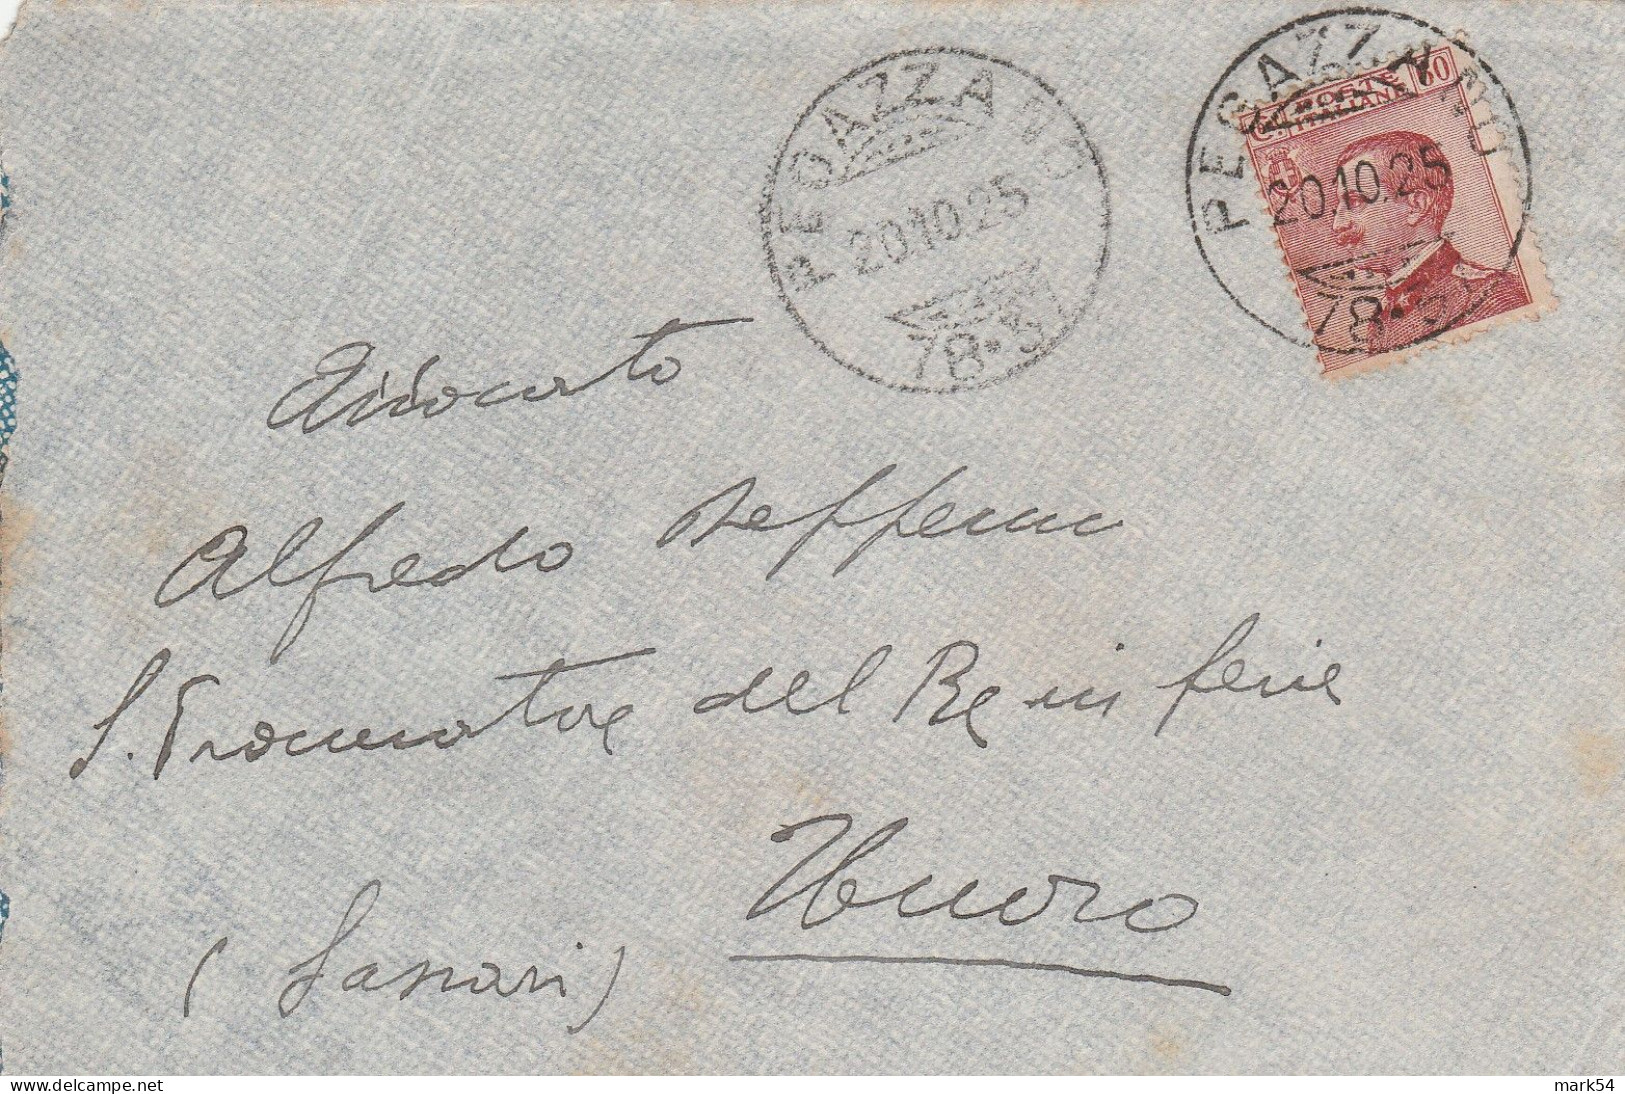 PEGAZZANO
20.10.25
78-5
PEGAZZANO
20.10.25
78-5
POSTE
ITALIANE
C. 60
Avvocato
Alfredo
S. Procuratore del Re in ferie
Nuoro
(Sassari)
delcampe.net
mark54